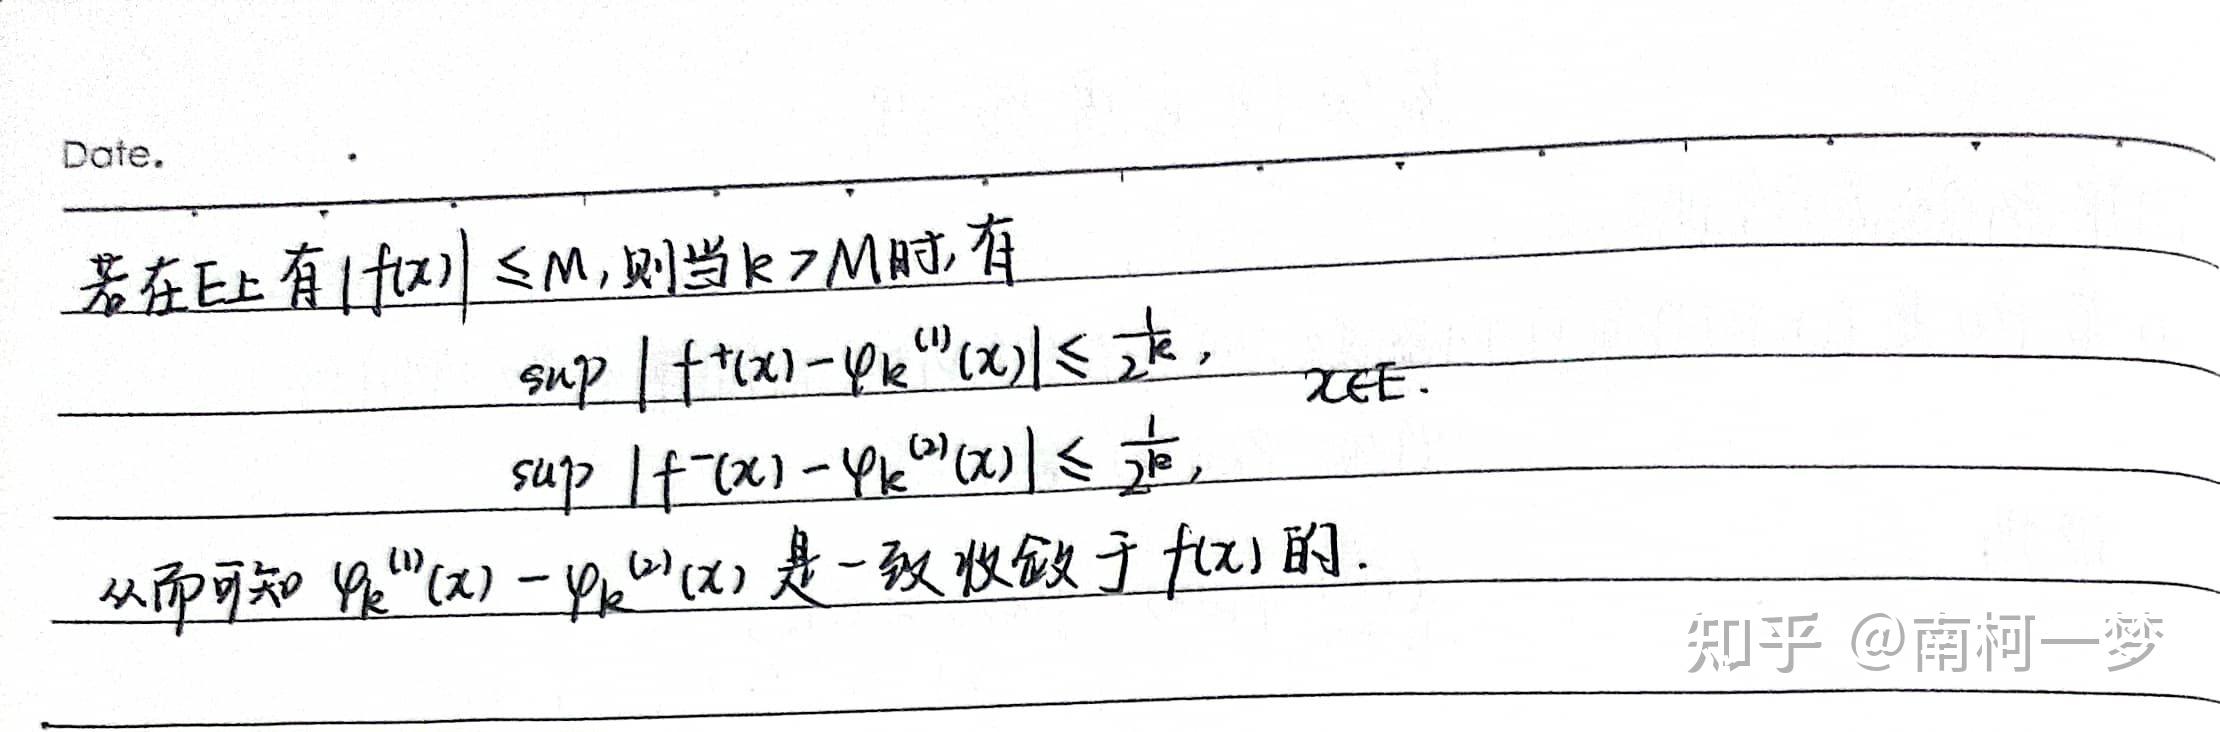 Date.
若在E上有|f(x)| ≤ M, 则当 k > M 时, 有
sup |f⁺(x) - φₖ⁽¹⁾(x)| ≤ 1/2ᵏ,
x∈E.
sup |f⁻(x) - φₖ⁽²⁾(x)| ≤ 1/2ᵏ,
从而可知 φₖ⁽¹⁾(x) - φₖ⁽²⁾(x) 是一致收敛于 f(x) 的.
知乎 @南柯一梦